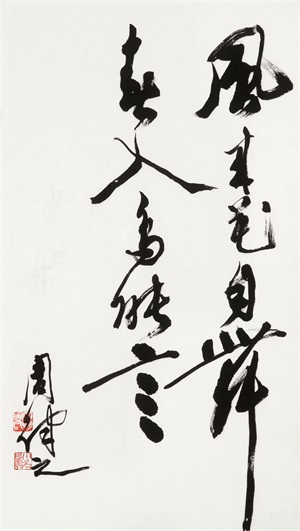 風来花自舞
春入鳥能言
周健之